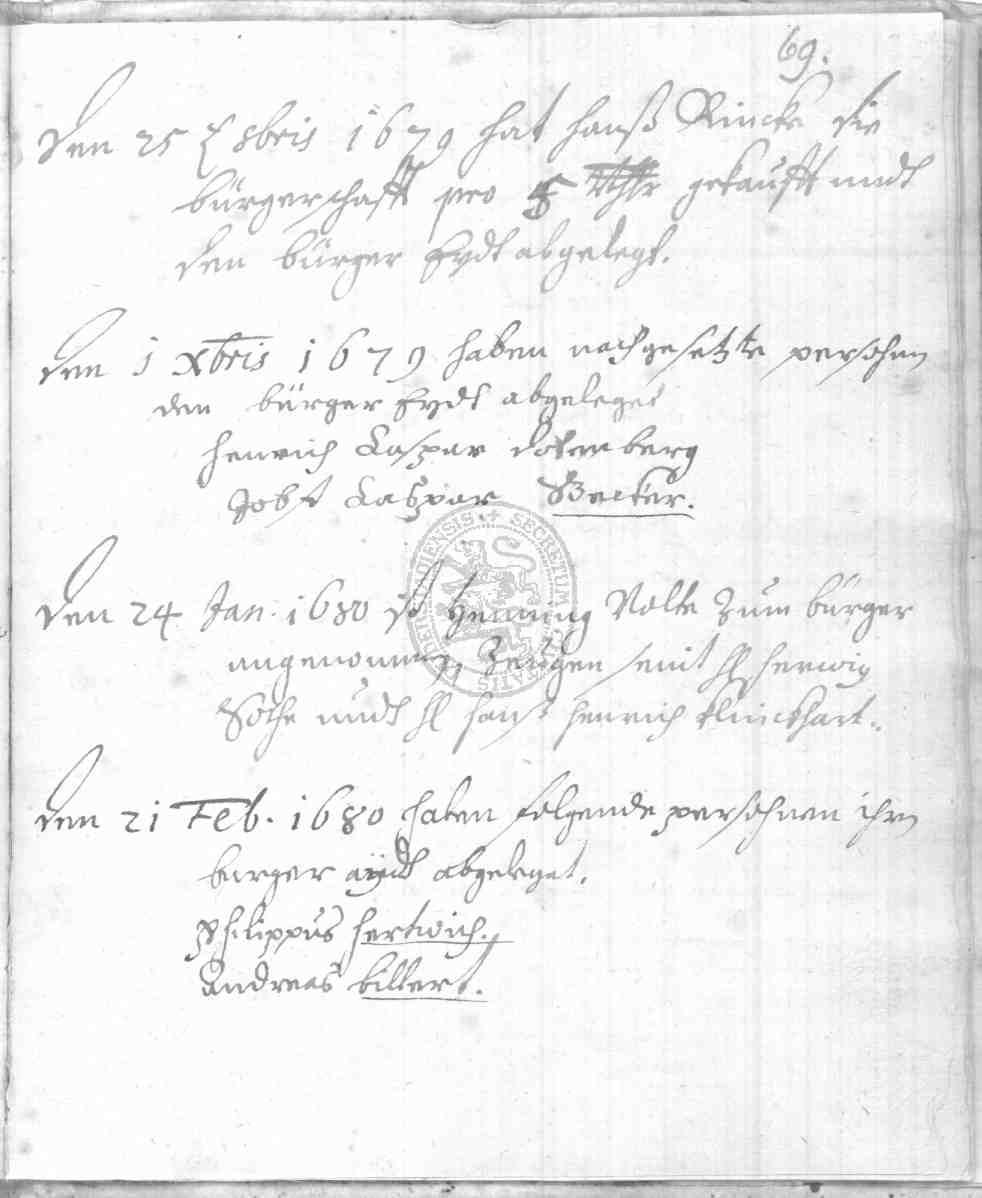 69.
Den 25 8bris 1679 hat Hanß Rincke die
bürgerschafft pro 5 Rthlr gekaufft undt
den bürger Eydt abgelegt.
Den 1 Xbris 1679 haben nachgesetzte persohnen
den bürger Eydt abgeleget
Henrich Caspar
Jobst Caspar Becker.
Den 24 Jan. 1680 ist Henning Nolte Zum bürger
angenommen, Zeugen seint H Herwig
Sothe undt H Hanß Henrich Klinckhart.
Den 21 Feb. 1680 haben folgende persohnen ihren
burger aydt abgeleget.
Philippus Hertwich.
Andreas Billert.
SECRETUM CIVITATIS